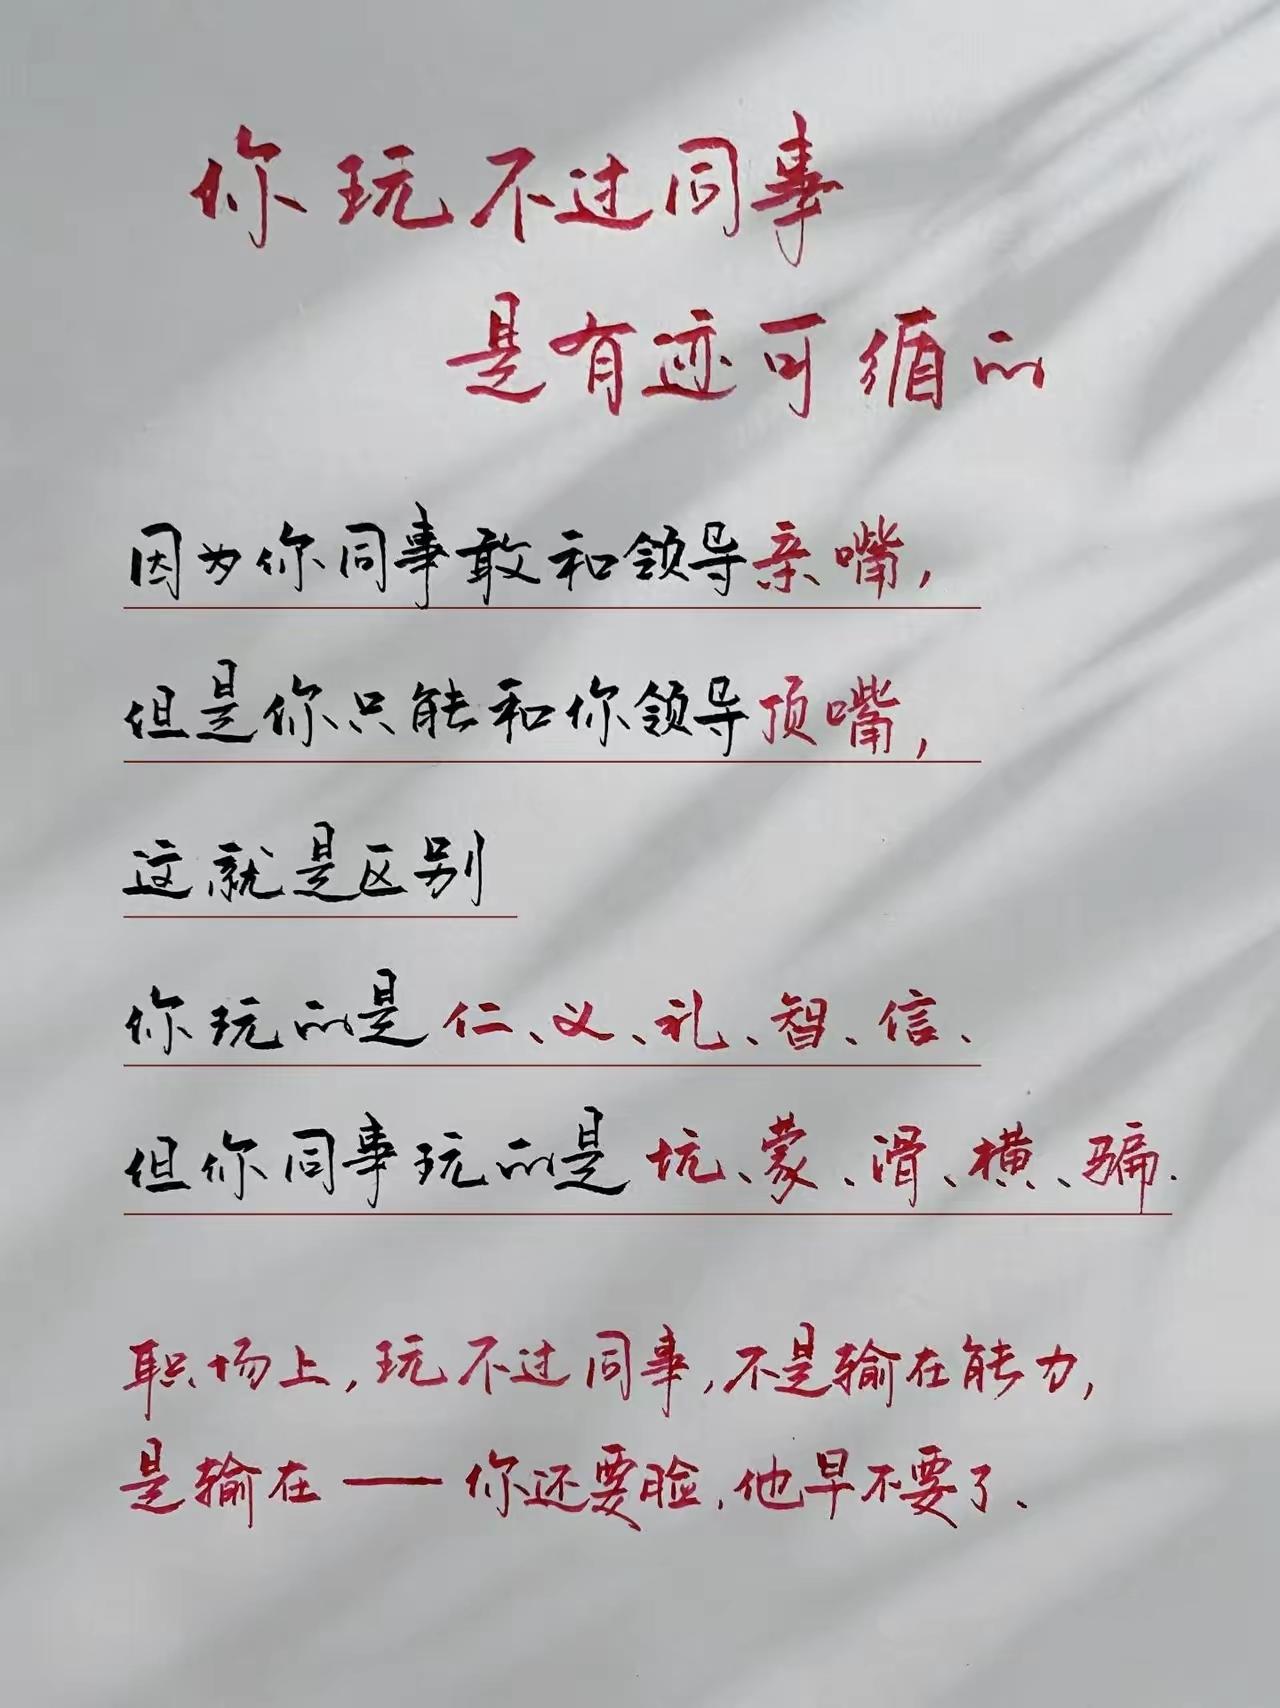 你玩不过同事
是有迹可循的
因为你同事敢和领导亲嘴，
但是你只能和你领导顶嘴，
这就是区别
你玩的是仁、义、礼、智、信、
但你同事玩的是坑、蒙、滑、横、骗.
职场上，玩不过同事，不是输在能力，
是输在——你还要脸，他早不要了、